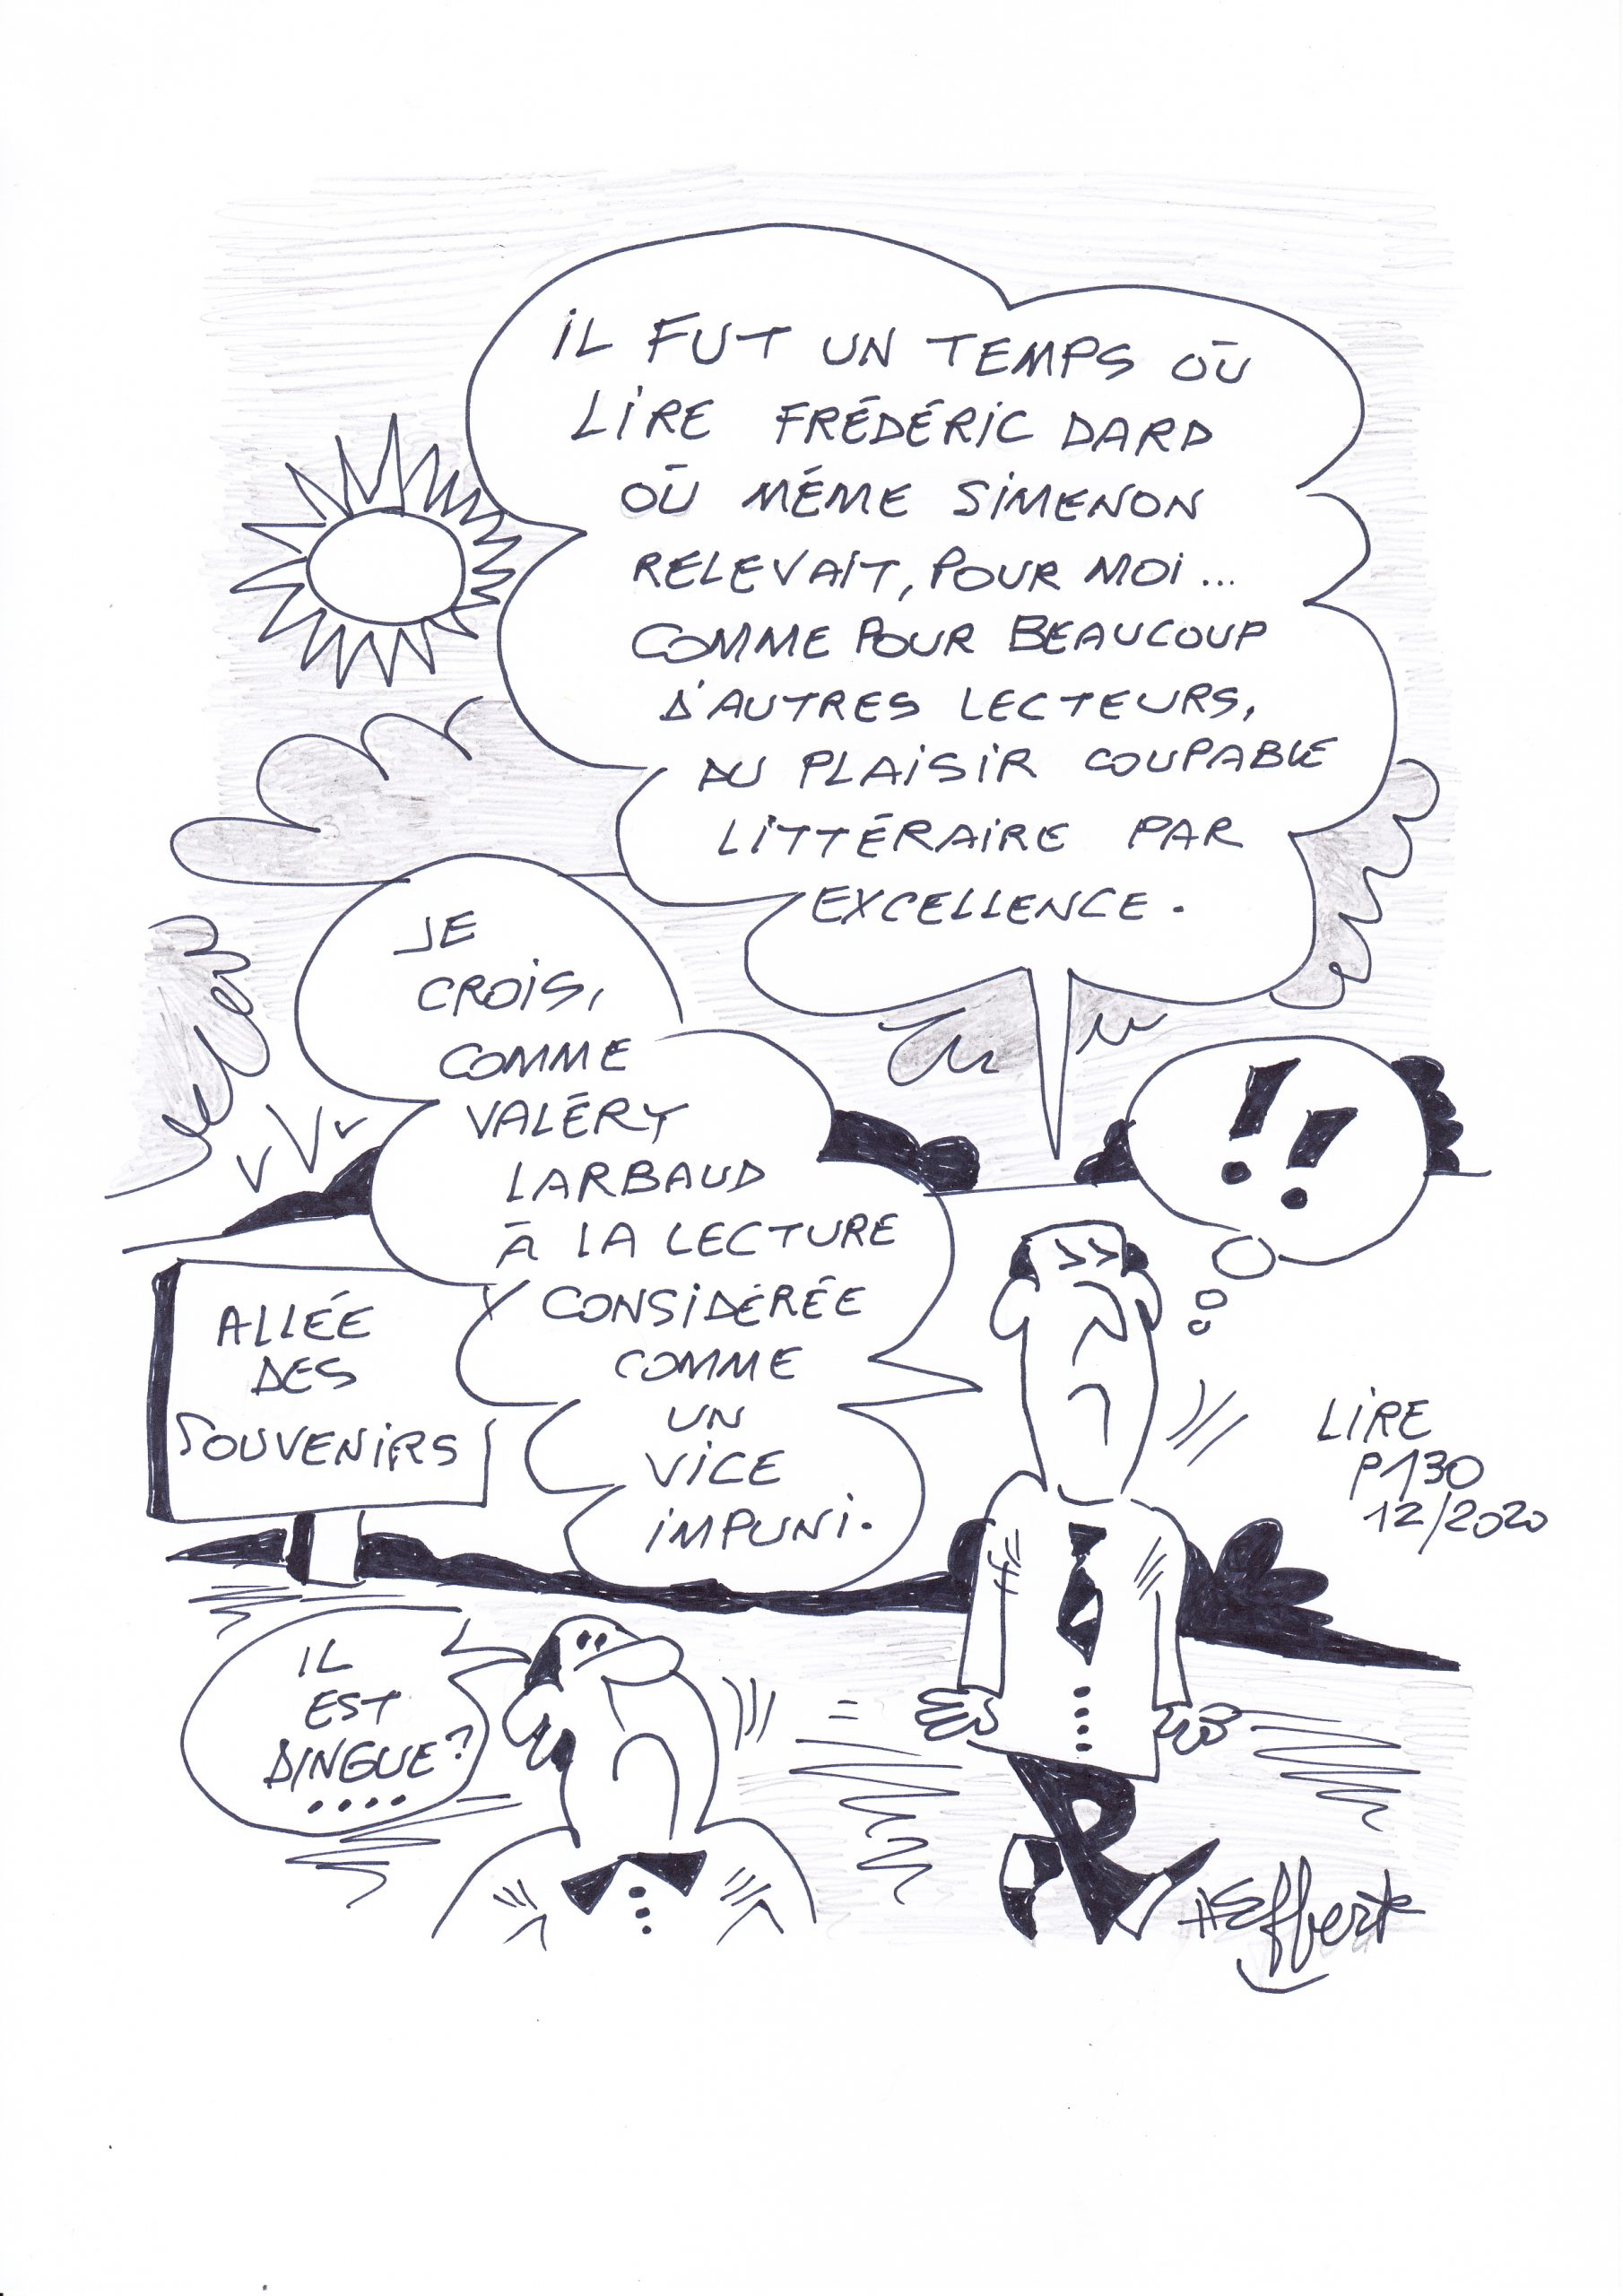 IL FUT UN TEMPS OÙ
LIRE FRÉDÉRIC DARD
OÙ MÊME SIMENON
RELEVAIT, POUR MOI...
COMME POUR BEAUCOUP
D'AUTRES LECTEURS,
DU PLAISIR COUPABLE
LITTÉRAIRE PAR
EXCELLENCE.
JE
CROIS,
COMME
VALÉRY
LARBAUD
À LA LECTURE
CONSIDÉRÉE
COMME
UN
VICE
IMPUNI.
!!
ALLÉE
DES
SOUVENIRS
LIRE
P130
12/2020
IL
EST
DINGUE?
....
#Effbert